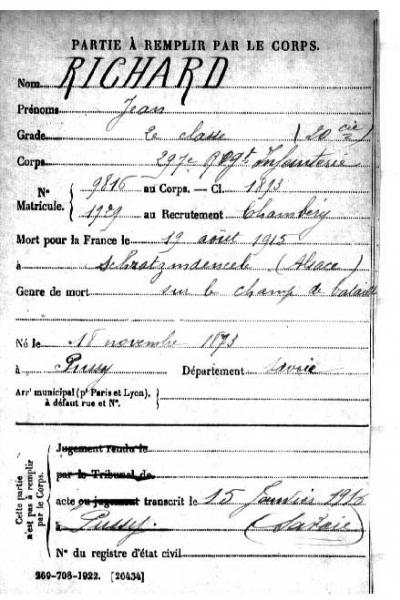 PARTIE À REMPLIR PAR LE CORPS.
Nom RICHARD
Prénoms Jean
Grade 2e classe (20 cie)
Corps 297e Régt Infanterie
Nº Matricule. 9816 au Corps. — Cl. 1893
1929 au Recrutement Chambéry
Mort pour la France le 19 août 1915
à (Alsace)
Genre de mort sur le champ de bataille
Né le 18 novembre 1873
à Pussy Département Savoie
Arrt municipal (pr Paris et Lyon), à défaut rue et Nº.
Cette partie n'est pas à remplir par le Corps.
Jugement rendu le
par le Tribunal de
acte ou jugement transcrit le 15 Janvier 1916
à Pussy (Savoie)
Nº du registre d'état civil
269-708-1922. [26434]